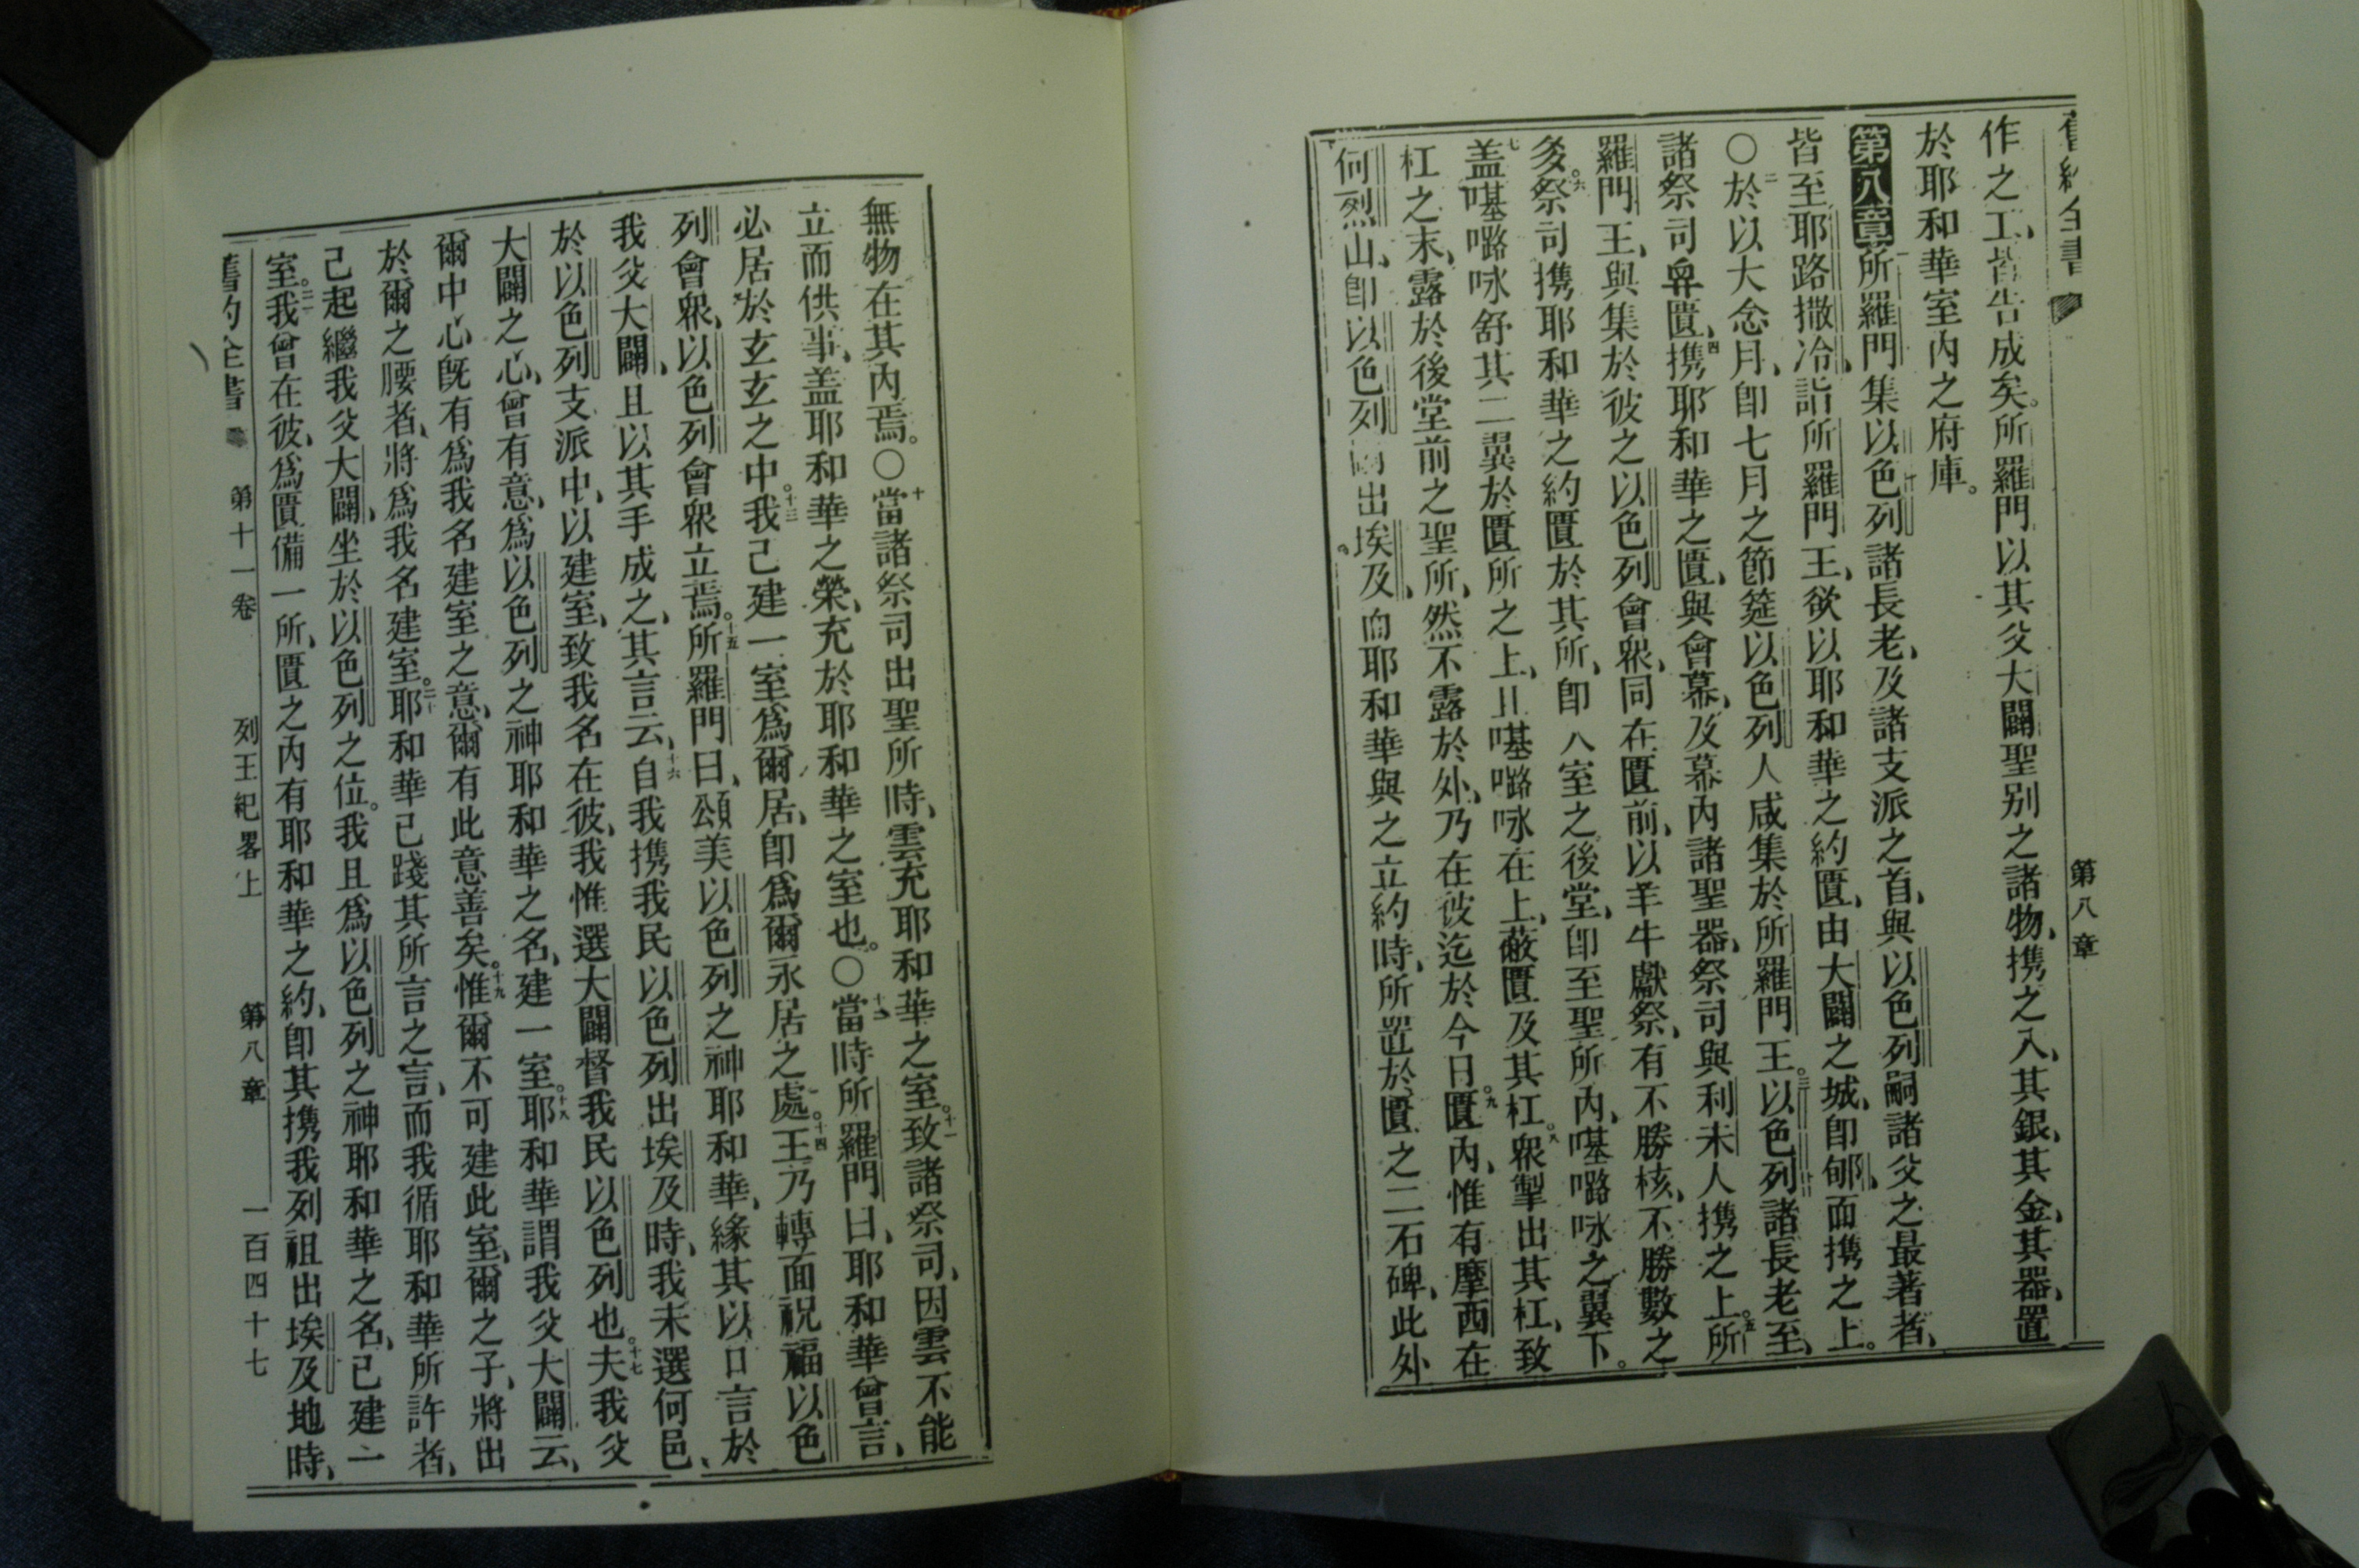 舊約全書
第八章
作之工、皆告成矣。所羅門以其父大闢聖別之諸物、携之入、其銀、其金、其器、置
於耶和華室內之府庫。
第八章 一所羅門集以色列諸長老、及諸支派之首、與以色列嗣諸父之最著者、
皆至耶路撒冷、詣所羅門王、欲以耶和華之約匱、由大闢之城、即郇、而携之上。
〇二於以大念月、即七月之節筵、以色列人咸集於所羅門王。三以色列諸長老至、
諸祭司舁匱、四携耶和華之匱、與會幕、及幕內諸聖器、祭司與利未人携之上。五所
羅門王、與集於彼之以色列會衆、同在匱前、以羊牛獻祭、有不勝核、不勝數之
多。六祭司携耶和華之約匱於其所、即 室之後堂、即至聖所內、𠼻嚕咏之翼下。
七盖𠼻嚕咏舒其二翼於匱所之上、且𠼻嚕咏在上、蔽匱及其杠。八衆掣出其杠、致
杠之末、露於後堂前之聖所、然不露於外、乃在彼迄於今日。九匱內、惟有摩西在
何烈山、即以色列 出埃及、 耶和華與之立約時、所置於匱之二石碑、此外
無物在其內焉。〇十當諸祭司出聖所時、雲充耶和華之室。十一致諸祭司、因雲不能
立而供事、盖耶和華之榮、充於耶和華之室也。〇十二當時所羅門曰、耶和華曾言、
必居於玄玄之中。十三我已建一室、爲爾居、即爲爾永居之處。十四王乃轉面祝福以色
列會衆、以色列會衆立焉。十五所羅門曰、頌美以色列之神耶和華、緣其以口言於
我父大闢、且以其手成之、其言云、十六自我携我民以色列出埃及時、我未選何邑、
於以色列支派中、以建室、致我名在彼、我惟選大闢督我民以色列也。十七夫我父
大闢之心、曾有意、爲以色列之神耶和華之名、建一室。十八耶和華謂我父大闢云、
爾中心既有爲我名建室之意、爾有此意善矣。十九惟爾不可建此室、爾之子、將出
於爾之腰者、將爲我名建室。二十耶和華已踐其所言之言、而我循耶和華所許者、
己起繼我父大闢、坐於以色列之位。我且爲以色列之神耶和華之名、已建一
室。二一我曾在彼、爲匱備一所、匱之內有耶和華之約、即其携我列祖出埃及地時、
舊約全書 第十一卷 列王紀畧上 第八章 一百四十七